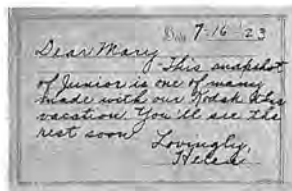 Date 7-16-23
Dear Mary
This snapshot
of Junior is one of many
made with our Kodak this
vacation. You'll see the
rest soon
Lovingly,
Helen